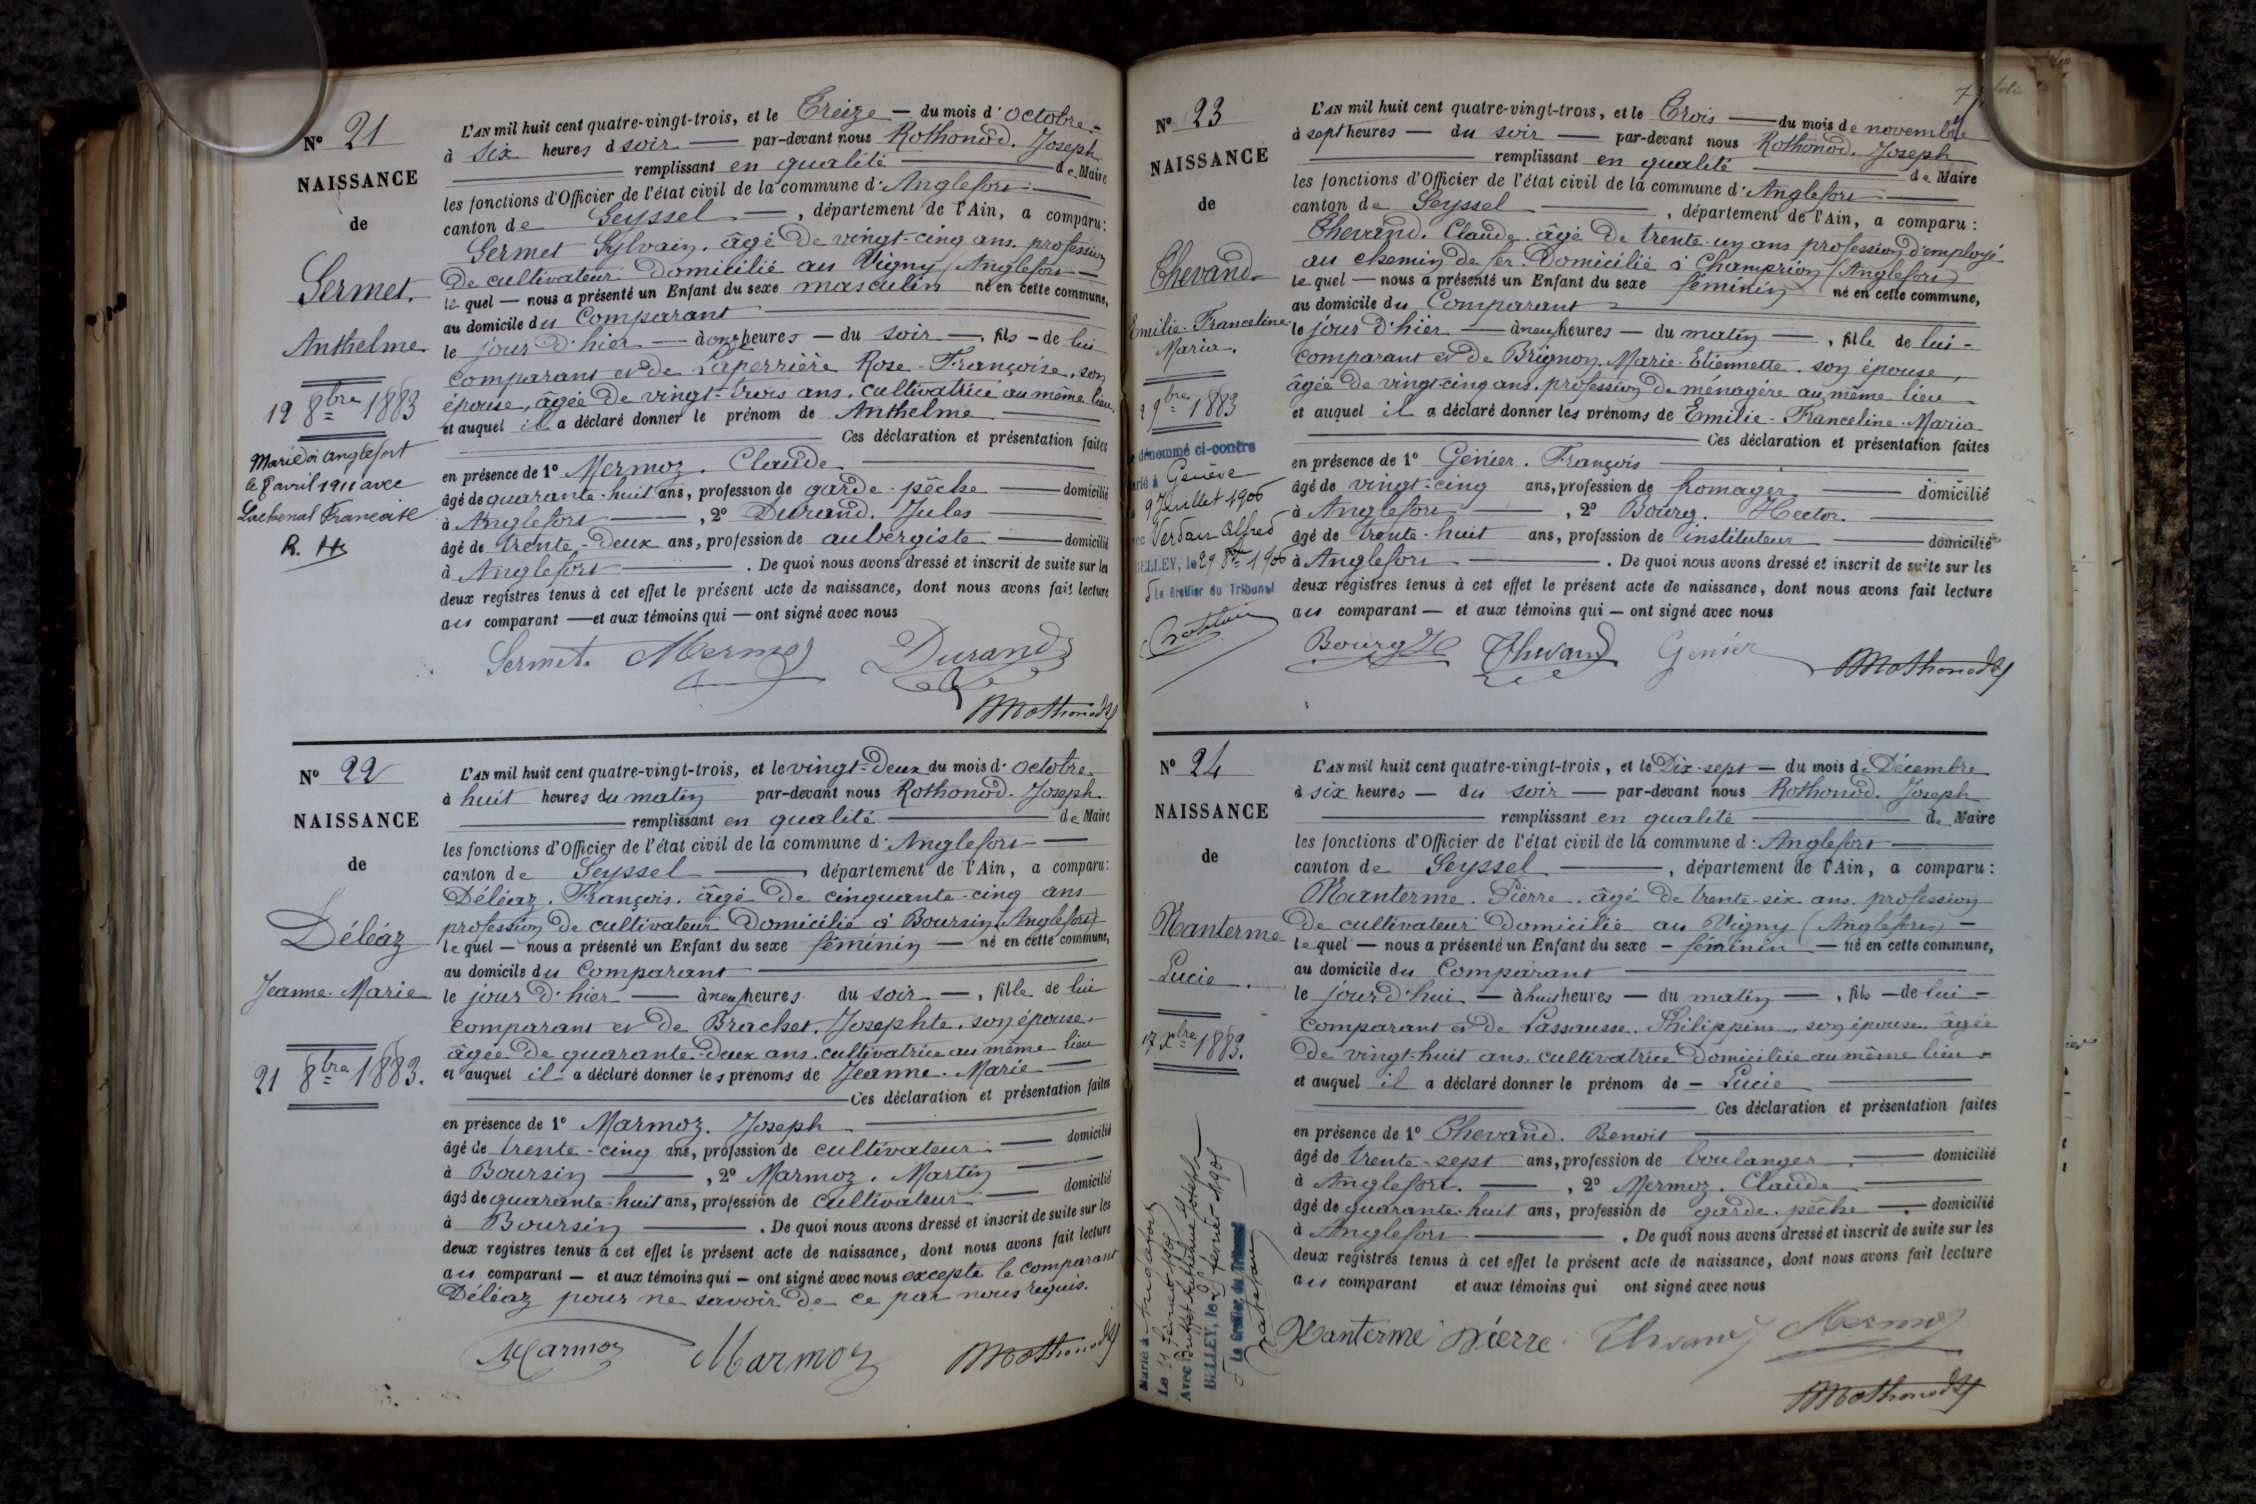 N° 21
NAISSANCE
de
Sermet
Anthelme
12 8bre 1883
Marié à Anglefort
le 8 avril 1911 avec
Lachenal Françoise
R. H
L'AN mil huit cent quatre-vingt-trois, et le Treize — du mois d'octobre
à six heures d soir — par-devant nous Rothonod. Joseph
remplissant en qualité — de Maire
les fonctions d'Officier de l'état civil de la commune d'Anglefort
canton de Seyssel —, département de l'Ain, a comparu:
Sermet Sylvain. âgé de vingt-cinq ans. profession
de cultivateur domicilié au Vigny (Anglefort
lequel — nous a présenté un Enfant du sexe masculin né en cette commune,
au domicile du Comparant
le jour d'hier — à onze heures — du soir —, fils — de lui
comparant et de Laperrière Rose-Françoise, son
épouse, âgée de vingt-trois ans. cultivatrice au même lieu.
et auquel il a déclaré donner le prénom de Anthelme
Ces déclaration et présentation faites
en présence de 1° Mermoz. Claude
âgé de quarante-huit ans, profession de garde-pêche — domicilié
à Anglefort —, 2° Durand. Jules
âgé de trente-deux ans, profession de aubergiste — domicilié
à Anglefort — . De quoi nous avons dressé et inscrit de suite sur les
deux registres tenus à cet effet le présent acte de naissance, dont nous avons fait lecture
au comparant — et aux témoins qui — ont signé avec nous
Sermet. Mermoz Durand
Rothonod J
N° 22
NAISSANCE
de
Déléaz
Jeanne-Marie
21 8bre 1883.
L'AN mil huit cent quatre-vingt-trois, et le vingt-deux du mois d'octobre
à huit heures du matin par-devant nous Rothonod. Joseph
remplissant en qualité — de Maire
les fonctions d'Officier de l'état civil de la commune d'Anglefort
canton de Seyssel —, département de l'Ain, a comparu:
Déléaz. François. âgé de cinquante-cinq ans
profession de cultivateur domicilié à Boursin (Anglefort)
lequel — nous a présenté un Enfant du sexe féminin — né en cette commune,
au domicile du Comparant
le jour d'hier — à neuf heures du soir —, fille de lui
comparant et de Brachet. Josephte. son épouse.
âgée de quarante-deux ans. cultivatrice au même lieu
et auquel il a déclaré donner les prénoms de Jeanne-Marie
Ces déclaration et présentation faites
en présence de 1° Marmoz. Joseph
âgé de trente-cinq ans, profession de cultivateur — domicilié
à Boursin —, 2° Marmoz. Martin
âgé de quarante-huit ans, profession de cultivateur — domicilié
à Boursin — . De quoi nous avons dressé et inscrit de suite sur les
deux registres tenus à cet effet le présent acte de naissance, dont nous avons fait lecture
au comparant — et aux témoins qui — ont signé avec nous excepté le comparant
Déléaz pour ne savoir de ce par nous requis.
Marmoz Marmoz Rothonod J
N° 23
NAISSANCE
de
Thevand
Emilie-Franceline
Maria.
2 9bre 1883
dénommé ci-contre
arié à Genève
9 Juillet 1906
Verdan Alfred
BELLEY, le 29 8bre 1906
Le Greffier du Tribunal
L'AN mil huit cent quatre-vingt-trois, et le Trois — du mois de novembre
à sept heures — du soir — par-devant nous Rothonod. Joseph
remplissant en qualité — de Maire
les fonctions d'Officier de l'état civil de la commune d'Anglefort
canton de Seyssel —, département de l'Ain, a comparu:
Thevand. Claude. âgé de trente-un ans profession d'employé
au chemin de fer. Domicilié à Champrion (Anglefort)
lequel — nous a présenté un Enfant du sexe féminin né en cette commune,
au domicile du Comparant
le jour d'hier — à neuf heures — du matin —, fille de lui-
comparant et de Brignon. Marie-Etiennette. son épouse,
âgée de vingt-cinq ans. profession de ménagère au même lieu
et auquel il a déclaré donner les prénoms de Emilie-Franceline-Maria
Ces déclaration et présentation faites
en présence de 1° Génier. François
âgé de vingt-cinq ans, profession de fromager — domicilié
à Anglefort —, 2° Bourg. Hector.
âgé de trente-huit ans, profession de instituteur — domicilié
à Anglefort — . De quoi nous avons dressé et inscrit de suite sur les
deux registres tenus à cet effet le présent acte de naissance, dont nous avons fait lecture
au comparant — et aux témoins qui — ont signé avec nous
Bourg H Thevand Génier Rothonod J
N° 24
NAISSANCE
de
Nanterme
Lucie.
17 Xbre 1883.
Marié à Anglefort
Avec Joseph
BELLEY, le février 1905
Le Greffier du Tribunal
L'AN mil huit cent quatre-vingt-trois, et le Dix-sept — du mois de Décembre
à six heures — du soir — par-devant nous Rothonod. Joseph
remplissant en qualité — de Maire
les fonctions d'Officier de l'état civil de la commune d'Anglefort
canton de Seyssel —, département de l'Ain, a comparu:
Nanterme. Pierre. âgé de trente-six ans. profession
de cultivateur domicilié au Vigny (Anglefort) —
lequel — nous a présenté un Enfant du sexe — féminin — né en cette commune,
au domicile du Comparant
le jour d'hui — à huit heures — du matin —, fils — de lui —
comparant et de Lassausse. Philippine. son épouse. âgée
de vingt-huit ans. cultivatrice domiciliée au même lieu —
et auquel il a déclaré donner le prénom de — Lucie
Ces déclaration et présentation faites
en présence de 1° Thevand. Benoit
âgé de trente-sept ans, profession de boulanger — domicilié
à Anglefort. —, 2° Mermoz. Claude
âgé de quarante-huit ans, profession de garde-pêche — domicilié
à Anglefort — . De quoi nous avons dressé et inscrit de suite sur les
deux registres tenus à cet effet le présent acte de naissance, dont nous avons fait lecture
au comparant et aux témoins qui ont signé avec nous
Nanterme Pierre Thevand Mermoz
Rothonod J